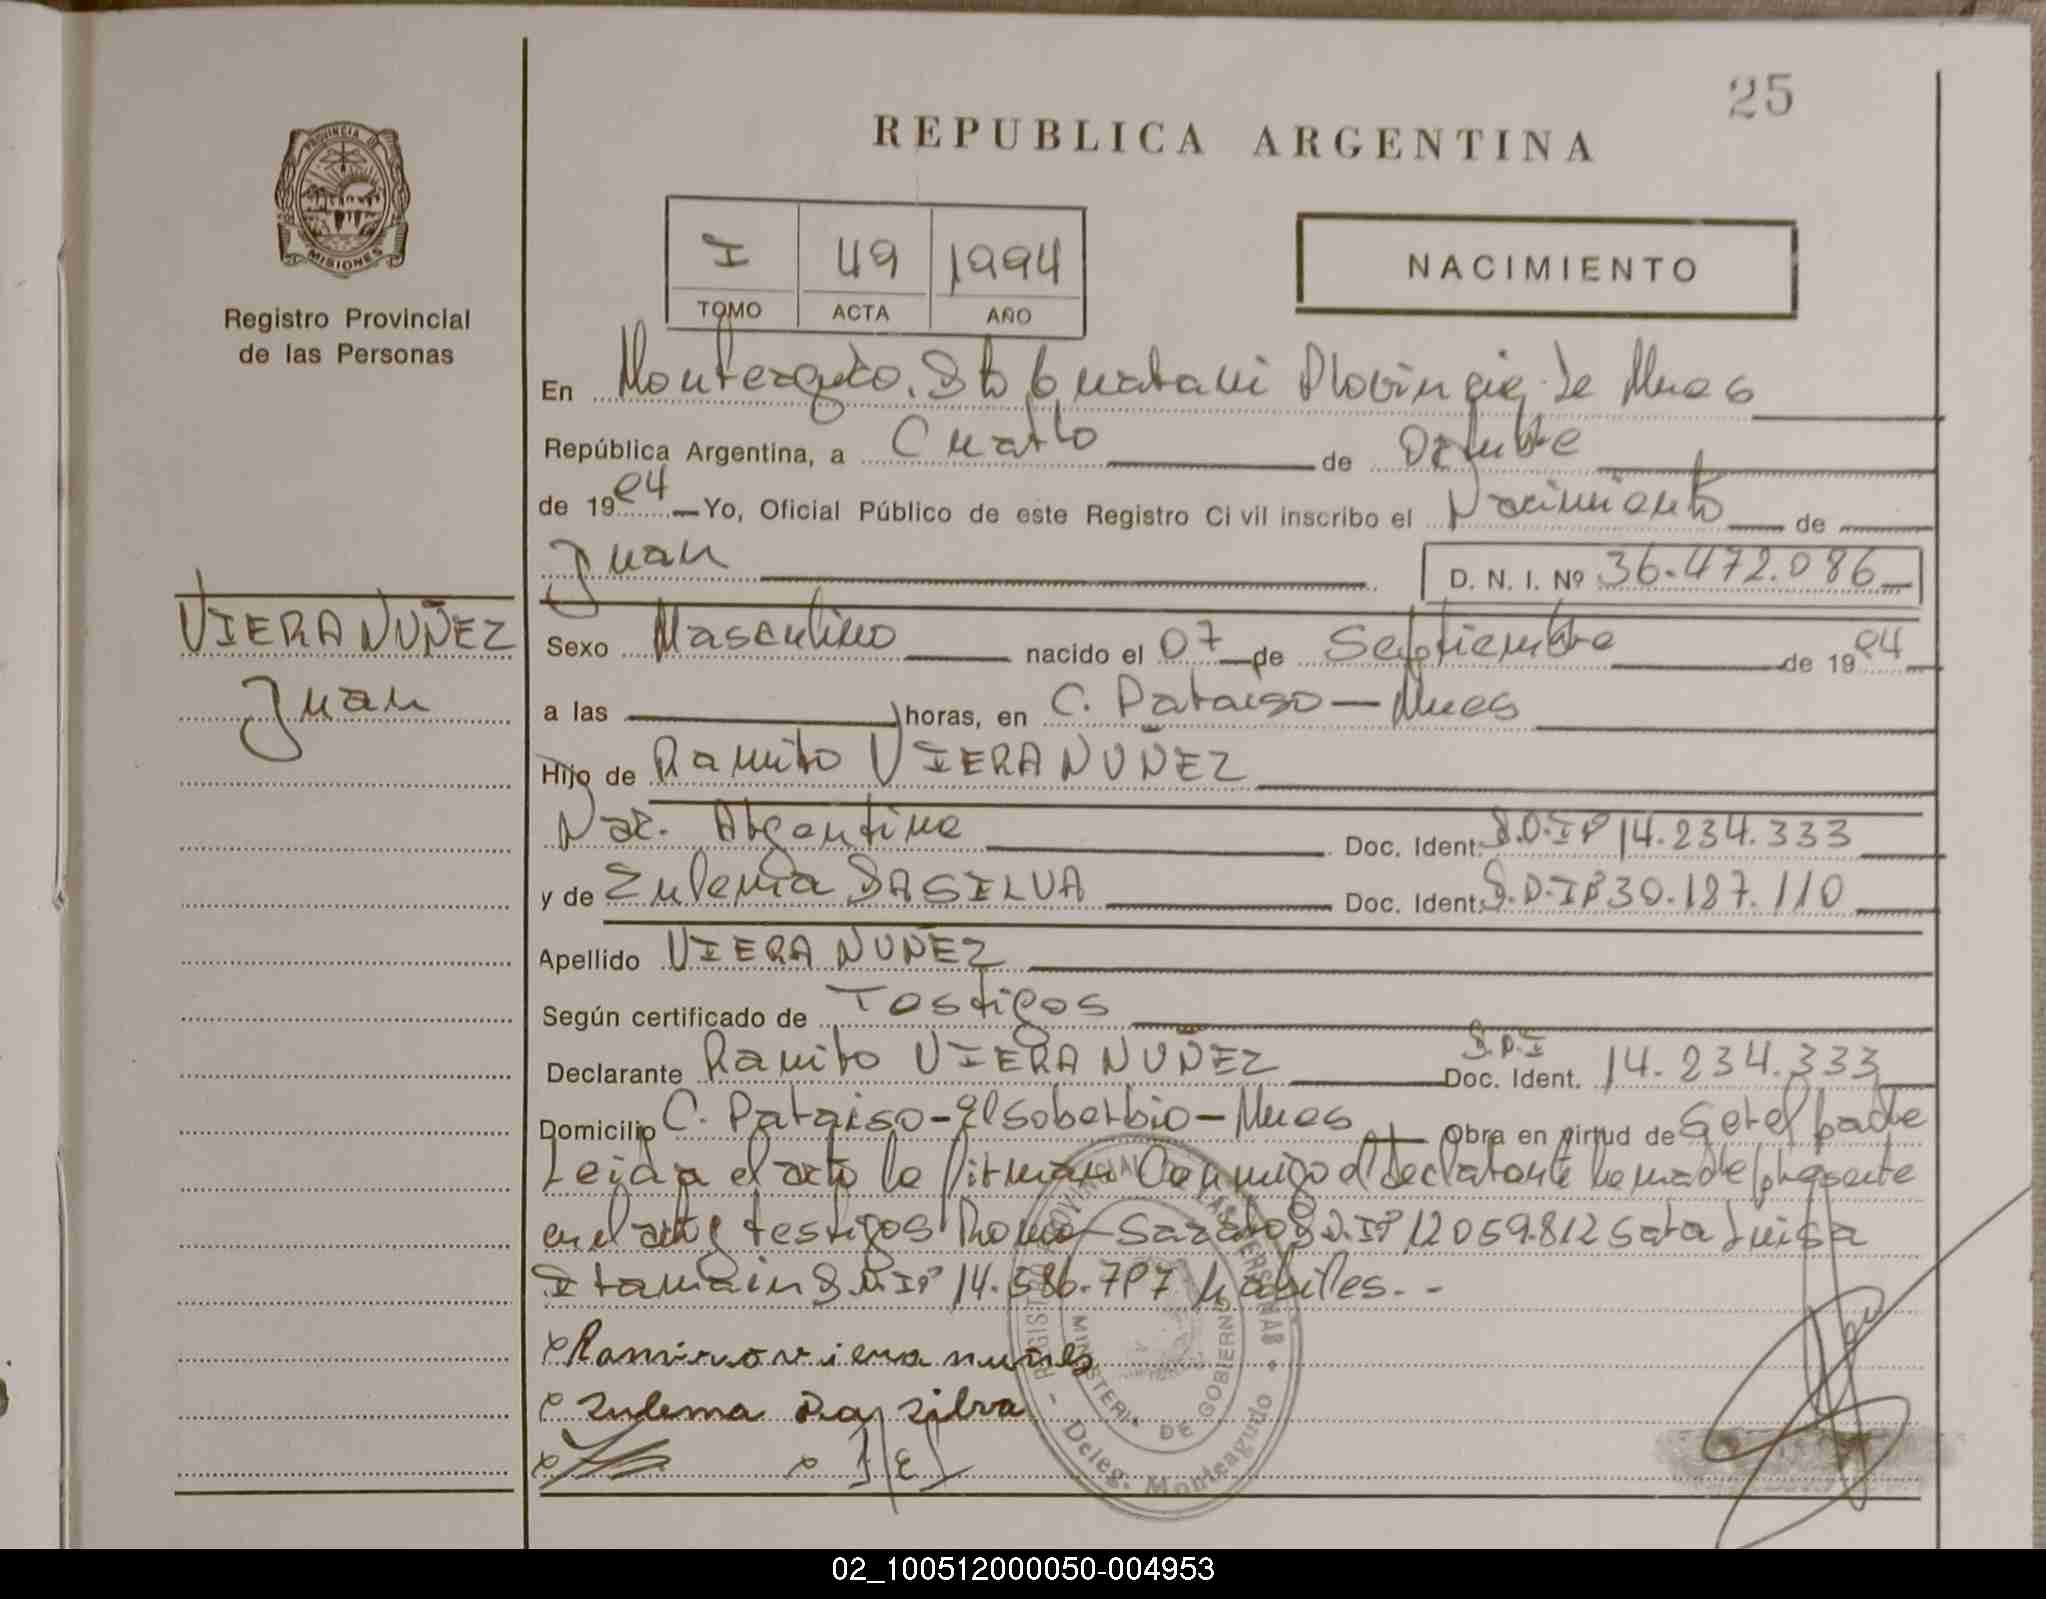 25
REPUBLICA ARGENTINA
PROVINCIA DE
MISIONES
Registro Provincial
de las Personas
I 49 1994
TOMO ACTA AÑO
NACIMIENTO
En Monteagudo. Dto Guarani Provincia de Mnes
República Argentina, a Cuatro de Octubre
de 1994 Yo, Oficial Público de este Registro Civil inscribo el Nacimiento de
Juan D. N. I. Nº 36.472.086
VIERA NUÑEZ
Juan
Sexo Masculino nacido el 07 de Septiembre de 1994
a las horas, en C. Paraiso - Mnes
Hijo de Ramiro VIERA NUÑEZ
Nac. Argentina Doc. Ident. 14.234.333
y de Zulema DA SILVA Doc. Ident. 30.187.110
Apellido VIERA NUÑEZ
Según certificado de Testigos
Declarante Ramiro VIERA NUÑEZ D.N.I Doc. Ident. 14.234.333
Domicilio C. Paraiso - El Soberbio - Mnes Obra en virtud de Ser el padre
Leida el acta la firman Conmigo el declarante la madre presente
en el acto y testigos 12059.812 Sara Luisa
14.586.797 habiles. - -
x Ramiro viera nuñes
x Zulema Da silva
x x
REGISTRO PROVINCIAL DE LAS PERSONAS
MINISTERIO DE GOBIERNO
Deleg. Monteagudo
02_100512000050-004953